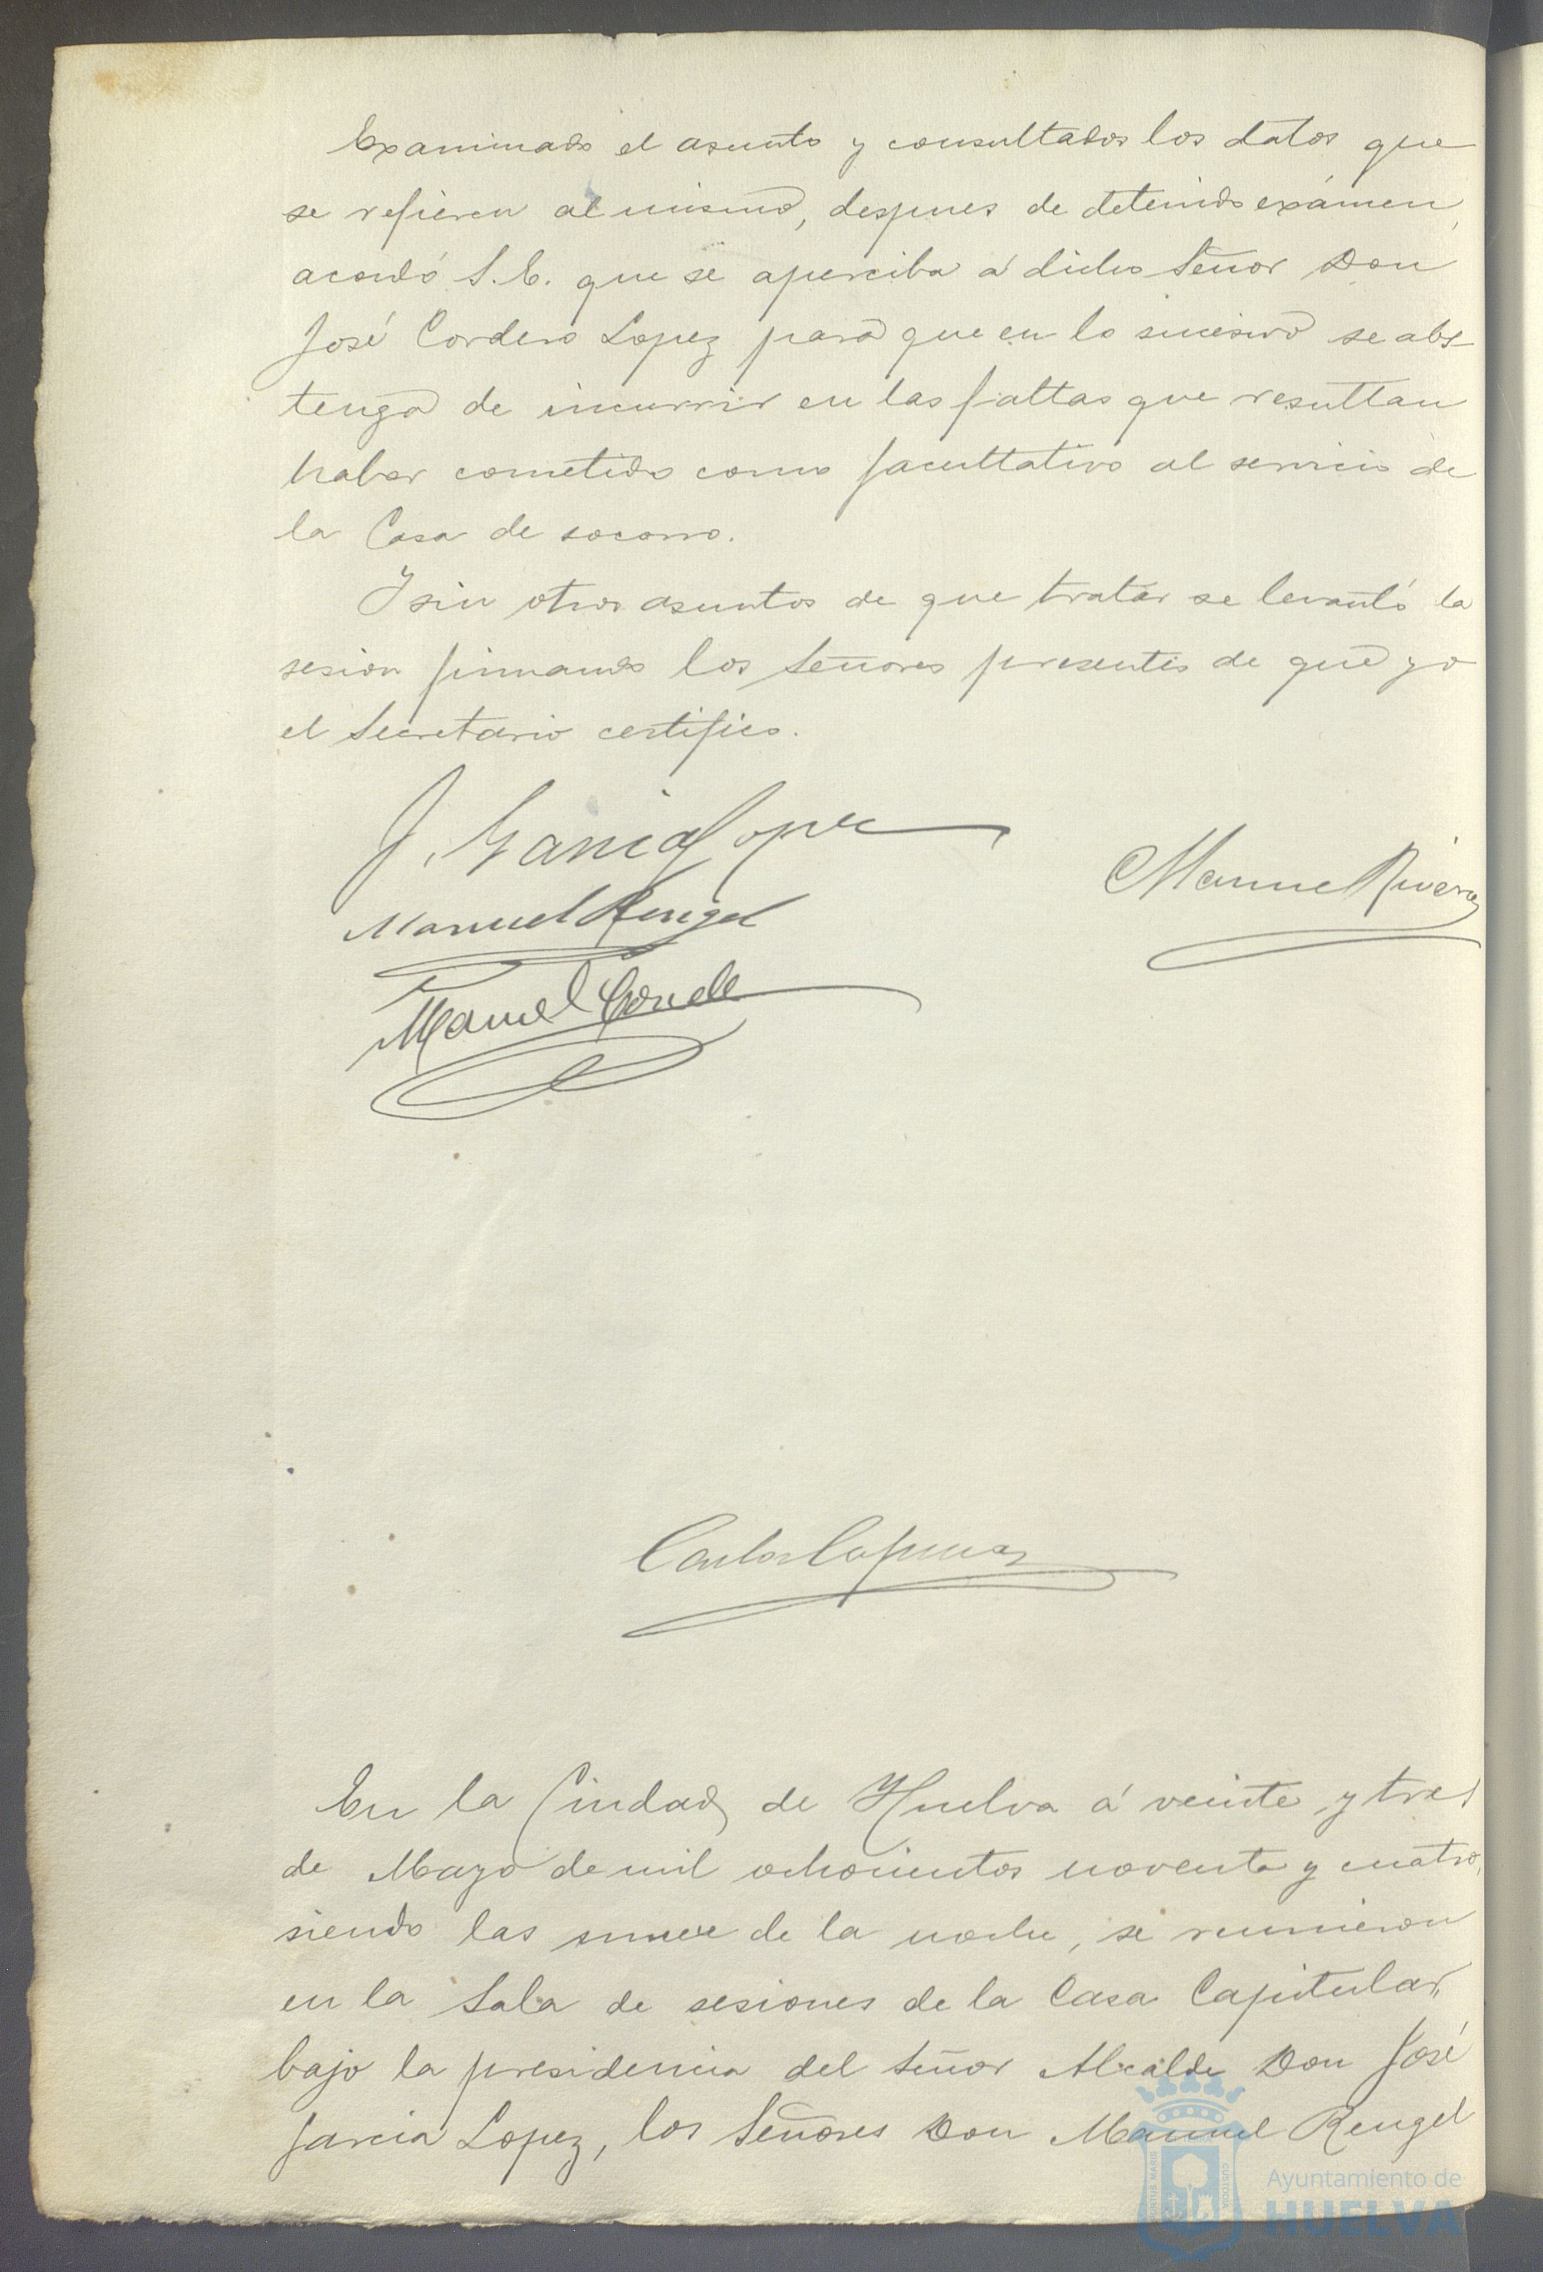 Examinado el asunto y consultados los datos que
se refieren al mismo, despues de detenido exámen,
acordó S.E. que se aperciba á dicho Señor Don
José Cordero Lopez para que en lo sucesivo se abs-
tenga de incurrir en las faltas que resultan
haber cometido como facultativo al servicio de
la Casa de socorro.
Y sin otros asuntos de que tratar se levantó la
sesion firmando los Señores presentes de que yo
el Secretario certifico.
J. Garcia Lopez
Manuel Rivera
Manuel Rengel
Manuel Conde
Carlos
En la Ciudad de Huelva á veinte y tres
de Mayo de mil ochocientos noventa y cuatro,
siendo las nueve de la noche, se reunieron
en la Sala de sesiones de la Casa Capitular,
bajo la presidencia del Señor Alcalde Don José
Garcia Lopez, los Señores Don Manuel Rengel
PORTUS MARIS
CUSTODIA
Ayuntamiento de
HUELVA